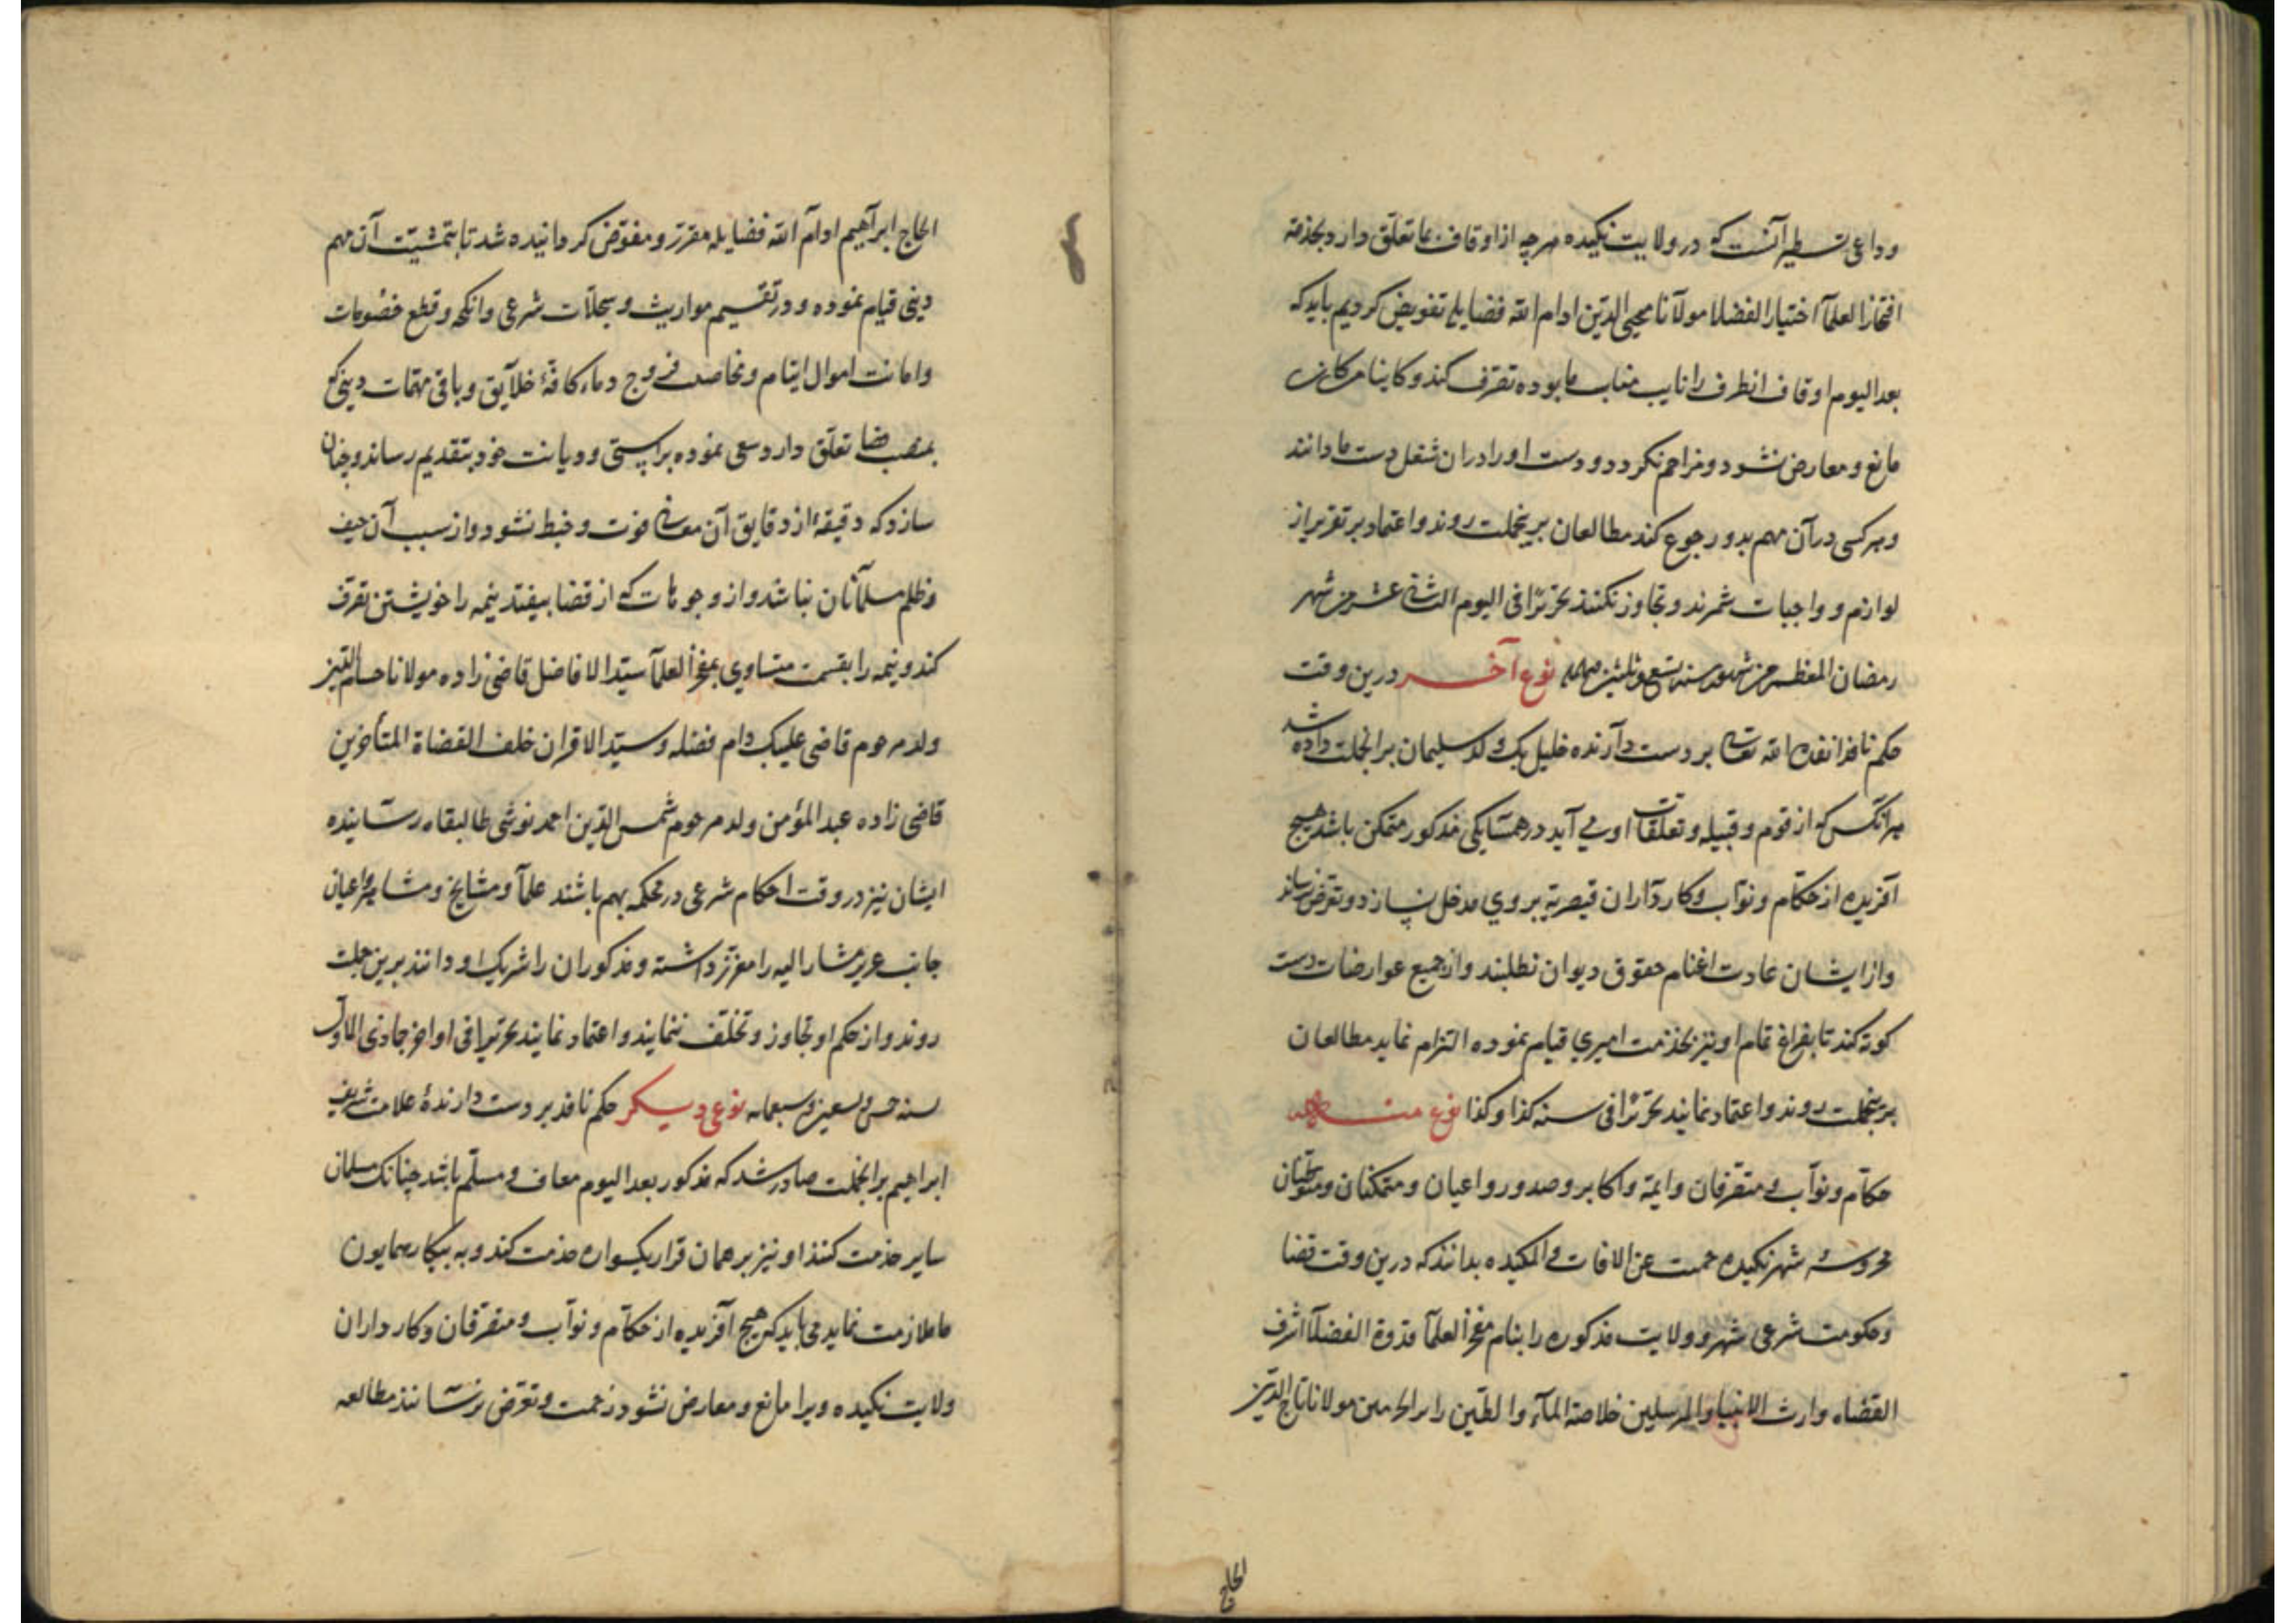 وداعی تسطیر آنست که در ولایت نکیده هرچه از اوقاف بما تعلق دارد بخدمة
افتخار العلمآ اختیار الفضلا مولانا محیی الدین ادام الله فضایله تفویض کردیم باید که
بعد الیوم اوقاف انطرف را نایب مناب ما بوده تصرف کند و کاینا من کان
مانع و معارض نشود و مزاحم نکردد و دست او را دران شغل دست ما دانند
و هر کسی در آن مهم بدو رجوع کند مطالعان برینجملت روند و اعتماد بر تقریر از
لوازم و واجبات شمرند و تجاوز نکنند تحریرًا فی الیوم الثانی عشر من شهر
رمضان المعظم من شهور سنه تسع وثلثین نوع آخر درین وقت
حکم نافذ انفذه الله تعالی بر دست دآرنده خلیل بک ولد سلیمان برانجملت داده شد
هر آنکس که از قوم و قبیله و تعلقات او می آید در همسایکی مذکور متمکن باشد هیچ
آفریده از حکآم و نوآب و کاردآران قیصریه بروی مدخل نسازد و تعرض نرساند
و از ایشان عادت اغنام حقوق دیوان نطلبند و از جمیع عوارضات دست
کوته کند تا بفراغ تمام او نیز بخدمت امیری قیام نموده التزام نماید مطالعان
برینجملت روند و اعتماد نمایند تحریرًا فی سنه کذا و کذا نوع منـه
حکآم و نوآب و متصرفان و ایمّه و اکابر و صدور و اعیان و متمکنان و متوطنان
محروسه شهر نکیده حمیت عن الافات و المکیده بدانند که درین وقت قضا
و حکومت شرعی شهر و ولایت مذکوره را بنام مفخر العلمآ قدوة الفضلآ اشرف
القضاه وارث الانبیا و المرسلین خلاصة المآء و الطین مولانا تاج الدین
الحاج
الحاج ابرآهیم ادام الله فضایله مقرر و مفوّض کردانیده شد تا بتمشیت آن مهم
دینی قیام نموده و در تقسیم مواریث و سجلآت شرعی و انکحه و قطع خصومات
و امانت اموال ایتام و تخاصم فروج و دماء کافّۀ خلآیق و باقی مهمّات دینی که
بمنصب قضا تعلّق دارد سعی نموده براستی و دیانت خود بتقدیم رساند و چنان
سازد که دقیقهٔ از دقایق آن معانی فوت و خبط نشود و از سبب آن حیف
و ظلم مسلمآنان نباشد و از وجوهات که از قضا بیفتد نیمه را خویشتن تصرف
کند و نیمه را بقسمت متساوی بمفخر العلمآ سیّد الافاضل قاضی زاده مولانا حسام الدین
ولد مرحوم قاضی علیبک دام فضله و سیّد الاقران خلف القضاة المتأخرین
قاضی زاده عبد المؤمن ولد مرحوم شمس الدین احمد نوشی طالبقاه رسآنیده
ایشان نیز در وقت احکام شرعی در محکمه بهم باشند علمآ و مشایخ و مشاهیر و اعیان
جانب عزیز مشار الیه را معزّز داشته و مذکوران را شریک او دانند برین جملت
روند و از حکم او تجاوز و تخلّف ننمایند و اعتماد نمایند تحریرا فی اواخر جمادی الاول
لسنه خمس و تسعین و سبعمایه نوعی دیـکر حکم نافذ بر دست دارندهٔ علامت شریف
ابراهیم برانجملت صادر شد که مذکور بعد الیوم معاف و مسلّم باشد چنانک مسلمان
سایر خدمت کنند او نیز بر همان قرار یکسواره خدمت کند و به بیکار همایون
ما ملازمت نماید می باید که هیچ آفریده از حکآم و نوآب و متصرّفان و کارداران
ولایت نکیده ویرا مانع و معارض نشود زحمت و تعرّض نرسآنند مطالعه